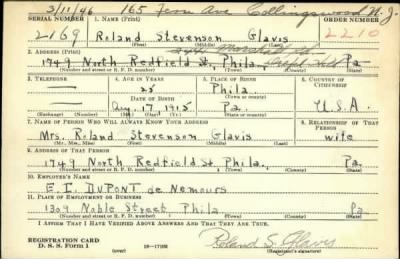 3/11/46 165 Fern Ave Collingswood N.J.
SERIAL NUMBER 1. NAME (Print) ORDER NUMBER
2169 Roland Stevenson Glavis 2210
(First) (Middle) (Last)
2. ADDRESS (Print) Marshall
1749 North Redfield St. Pa
(Number and street or R. F. D. number) (Town) (County) (State)
3. TELEPHONE 4. AGE IN YEARS 5. PLACE OF BIRTH 6. COUNTRY OF CITIZENSHIP
25 Phila.
DATE OF BIRTH (Town or county)
Aug. 17, 1915 Pa. U.S.A.
(Exchange) (Number) (Mo.) (Day) (Yr.) (State or country)
7. NAME OF PERSON WHO WILL ALWAYS KNOW YOUR ADDRESS 8. RELATIONSHIP OF THAT PERSON
Mrs. Roland Stevenson Glavis wife
9. ADDRESS OF THAT PERSON
1749 North Redfield St. Phila., Pa.
(Number and street or R. F. D. number) (Town) (County) (State)
10. EMPLOYER'S NAME
E. I. DuPont de Nemours
11. PLACE OF EMPLOYMENT OR BUSINESS
1309 Noble Street Phila Pa
(Number and street or R. F. D. number) (Town) (County) (State)
I AFFIRM THAT I HAVE VERIFIED ABOVE ANSWERS AND THAT THEY ARE TRUE.
REGISTRATION CARD
D. S. S. Form 1 (over) Roland S. Glavis
(Registrant's signature)